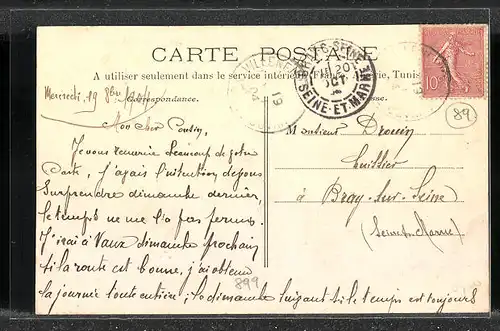 CARTE POSTALE
A utiliser seulement dans le service intérieur, France, Algérie, Tunis
Correspondance.
Adresse.
Mercredi, 19 8bre
Mon cher Cousin,
Je vous remercie beaucoup de votre
carte, j'avais l'intention de vous
surprendre dimanche dernier,
le temps ne me l'a pas permis.
J'irai à Vaux dimanche prochain
si la route est bonne, j'ai obtenu
la journée toute entière; le dimanche suivant si le temps est toujours
Monsieur Drouin
huissier
à Bray-sur-Seine
(Seine-et-Marne)
SEINE-ET-MARNE
20
OCT
19
10
89
899